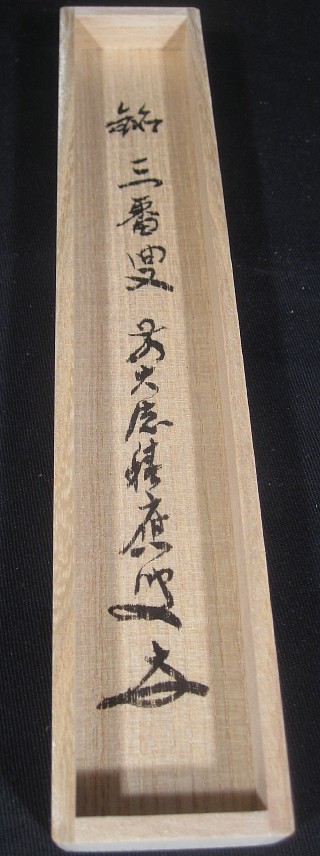 銘 三番叟 前大徳積應叟